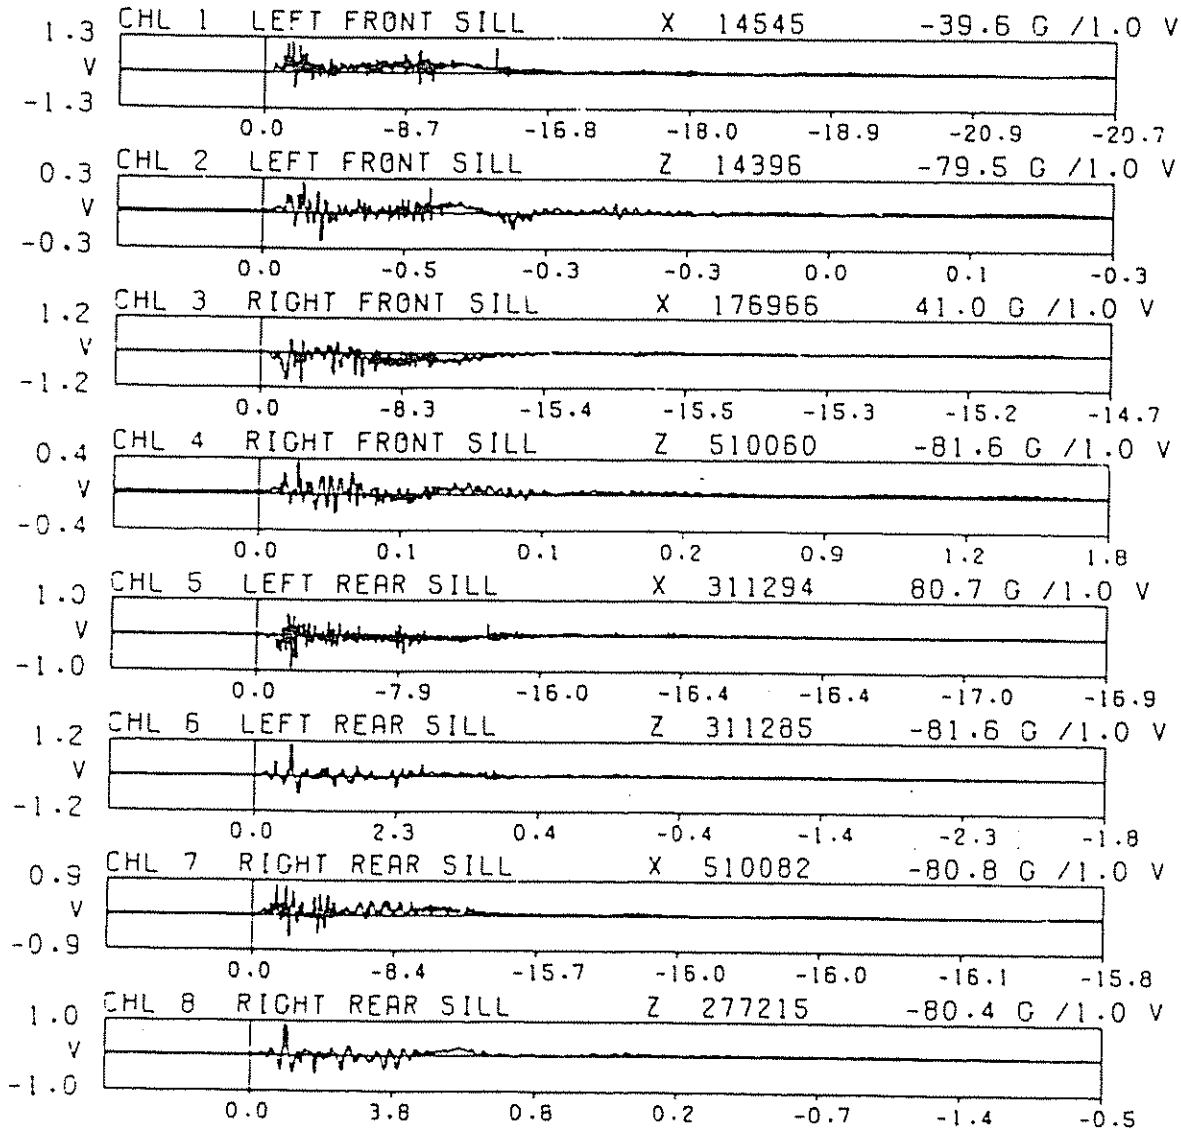 CHL 1 LEFT FRONT SILL X 14545 -39.6 G /1.0 V
1.3
V
-1.3
0.0 -8.7 -16.8 -18.0 -18.9 -20.9 -20.7
CHL 2 LEFT FRONT SILL Z 14396 -79.5 G /1.0 V
0.3
V
-0.3
0.0 -0.5 -0.3 -0.3 0.0 0.1 -0.3
CHL 3 RIGHT FRONT SILL X 176966 41.0 G /1.0 V
1.2
V
-1.2
0.0 -8.3 -15.4 -15.5 -15.3 -15.2 -14.7
CHL 4 RIGHT FRONT SILL Z 510060 -81.6 G /1.0 V
0.4
V
-0.4
0.0 0.1 0.1 0.2 0.9 1.2 1.8
CHL 5 LEFT REAR SILL X 311294 80.7 G /1.0 V
1.0
V
-1.0
0.0 -7.9 -16.0 -16.4 -16.4 -17.0 -16.9
CHL 6 LEFT REAR SILL Z 311285 -81.6 G /1.0 V
1.2
V
-1.2
0.0 2.3 0.4 -0.4 -1.4 -2.3 -1.8
CHL 7 RIGHT REAR SILL X 510082 -80.8 G /1.0 V
0.9
V
-0.9
0.0 -8.4 -15.7 -16.0 -16.0 -16.1 -15.8
CHL 8 RIGHT REAR SILL Z 277215 -80.4 G /1.0 V
1.0
V
-1.0
0.0 3.8 0.8 0.2 -0.7 -1.4 -0.5